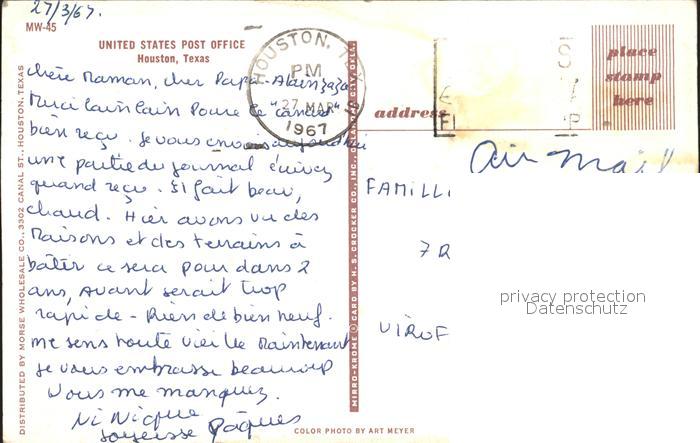 27/3/67.
MW-45
UNITED STATES POST OFFICE
Houston, Texas
chère Maman, cher Papa - Alain zaza
Merci Cain Cain Pour le "canard"
bien reçu. Je vous envoie aujourd'hui
une partie du journal écrivez
quand reçu. Il fait beau,
chaud. Hier avons vu des
Maisons et des terrains à
bâtir ce sera pour dans 2
ans, avant serait trop
rapide - Rien de bien neuf.
me sens toute vieille Maintenant
je vous embrasse beaucoup
Vous me manquez.
Ni Nique
Joyeuse Pâques
DISTRIBUTED BY MORSE WHOLESALE CO., 3302 CANAL ST., HOUSTON, TEXAS
MIRRO-KROME CARD BY H. S. CROCKER CO., INC., OKLAHOMA CITY, OKLA.
HOUSTON, TEX
PM
27 MAR
1967
address
place
stamp
here
Air Mail
FAMILL
7 R
VIROF
privacy protection
Datenschutz
COLOR PHOTO BY ART MEYER